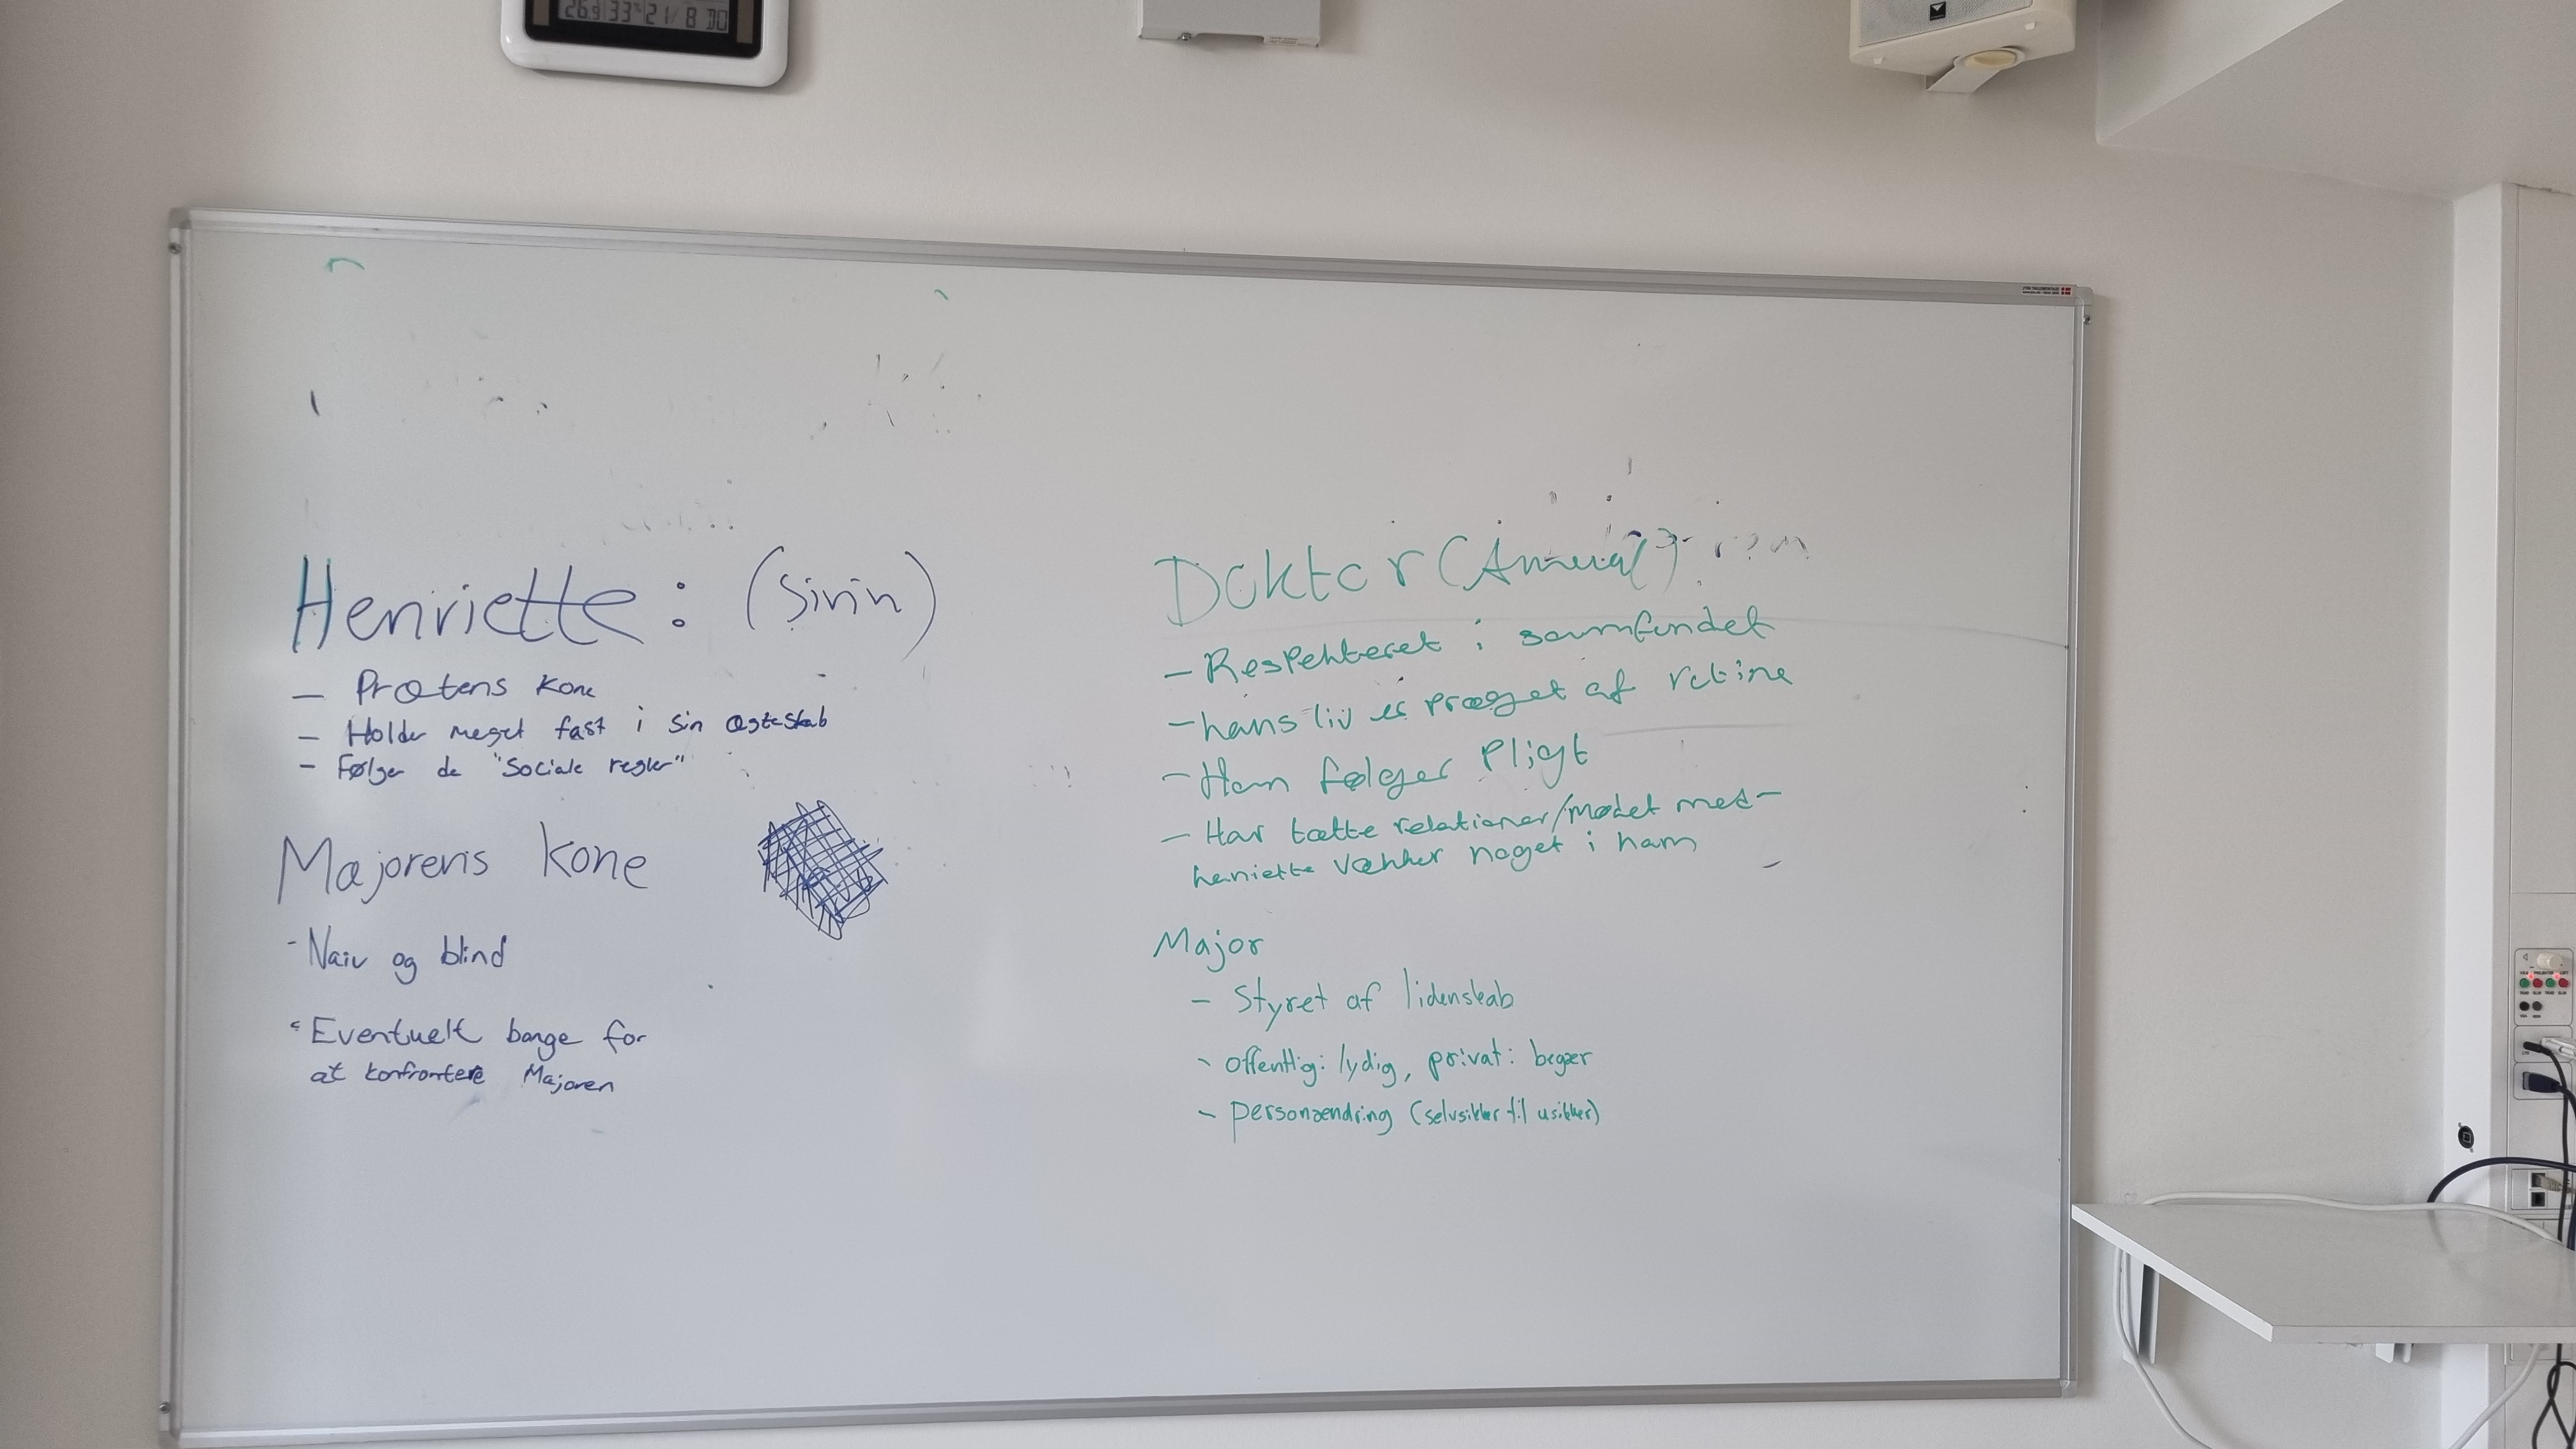 26.9 33% 21/ 8 DO
Henriette: (Sirin)
- Præstens kone
- Holder meget fast i sin ægteskab
- Følger de "Sociale regler"
Majorens kone
- Naiv og blind
- Eventuelt bange for
at konfrontere Majoren
Doktor
- Respekteret i samfundet
- hans liv er præget af rutine
- Han følger Pligt
- Har tætte relationer/mødet med-
henriette vækker noget i ham
Major
- Styret af lidenskab
- offentlig: lydig, privat: begær
- personændring (selvsikker til usikker)